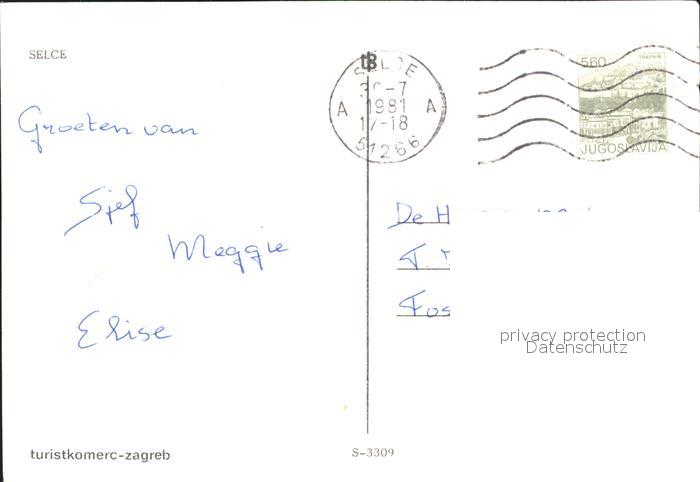 SELCE
tB
SELCE
30-7
A 1981 A
17-18
51266
5.60 TRAVNIK
JUGOSLAVIJA
Groeten van
Sjef
Maggie
Elise
De H
F.
Fos
privacy protection
Datenschutz
turistkomerc-zagreb
S-3309